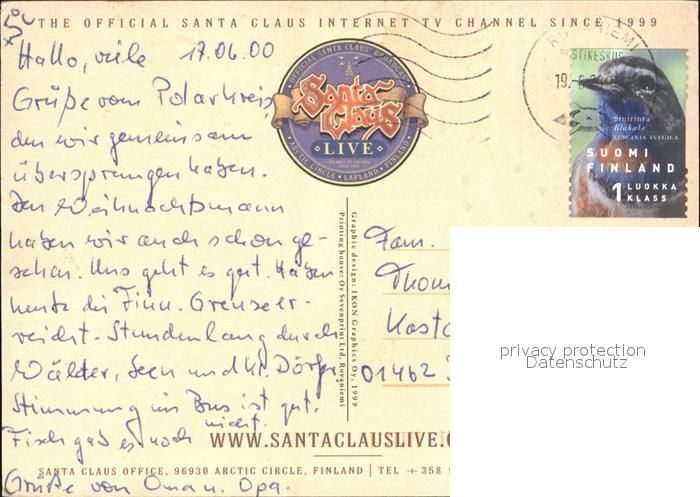 THE OFFICIAL SANTA CLAUS INTERNET TV CHANNEL SINCE 1999
Hallo, viele 17.06.00
Grüße vom Polarkreis
den wir gemeinsam
übersprungen haben.
Den Weihnachtsmann
haben wir auch schon ge-
sehen. Uns geht es gut. Haben
heute die Finn. Grenze er-
reicht. Stundenlang durch
Wälder, Seen und kl. Dörfer.
Stimmung im Bus ist gut.
Fisch gab es noch nicht.
Grüße von Oma u. Opa.
OFFICIAL SANTA CLAUS' BROADCAST
Santa
Claus
LIVE
ARCTIC CIRCLE • LAPLAND • FINLAND
ROVANIEMI
POSTIKESKUS
19.
Sinirinta
Blåhake
LUSCINIA SVECICA
SUOMI
FINLAND
1 LUOKKA
KLASS
Graphic design: IKON Graphics Oy, 1999
Printing house: Oy Sevenprint Ltd, Rovaniemi
Fam.
Thom
Kasta
01462
privacy protection
Datenschutz
WWW.SANTACLAUSLIVE.
SANTA CLAUS OFFICE, 96930 ARCTIC CIRCLE, FINLAND | TEL +358